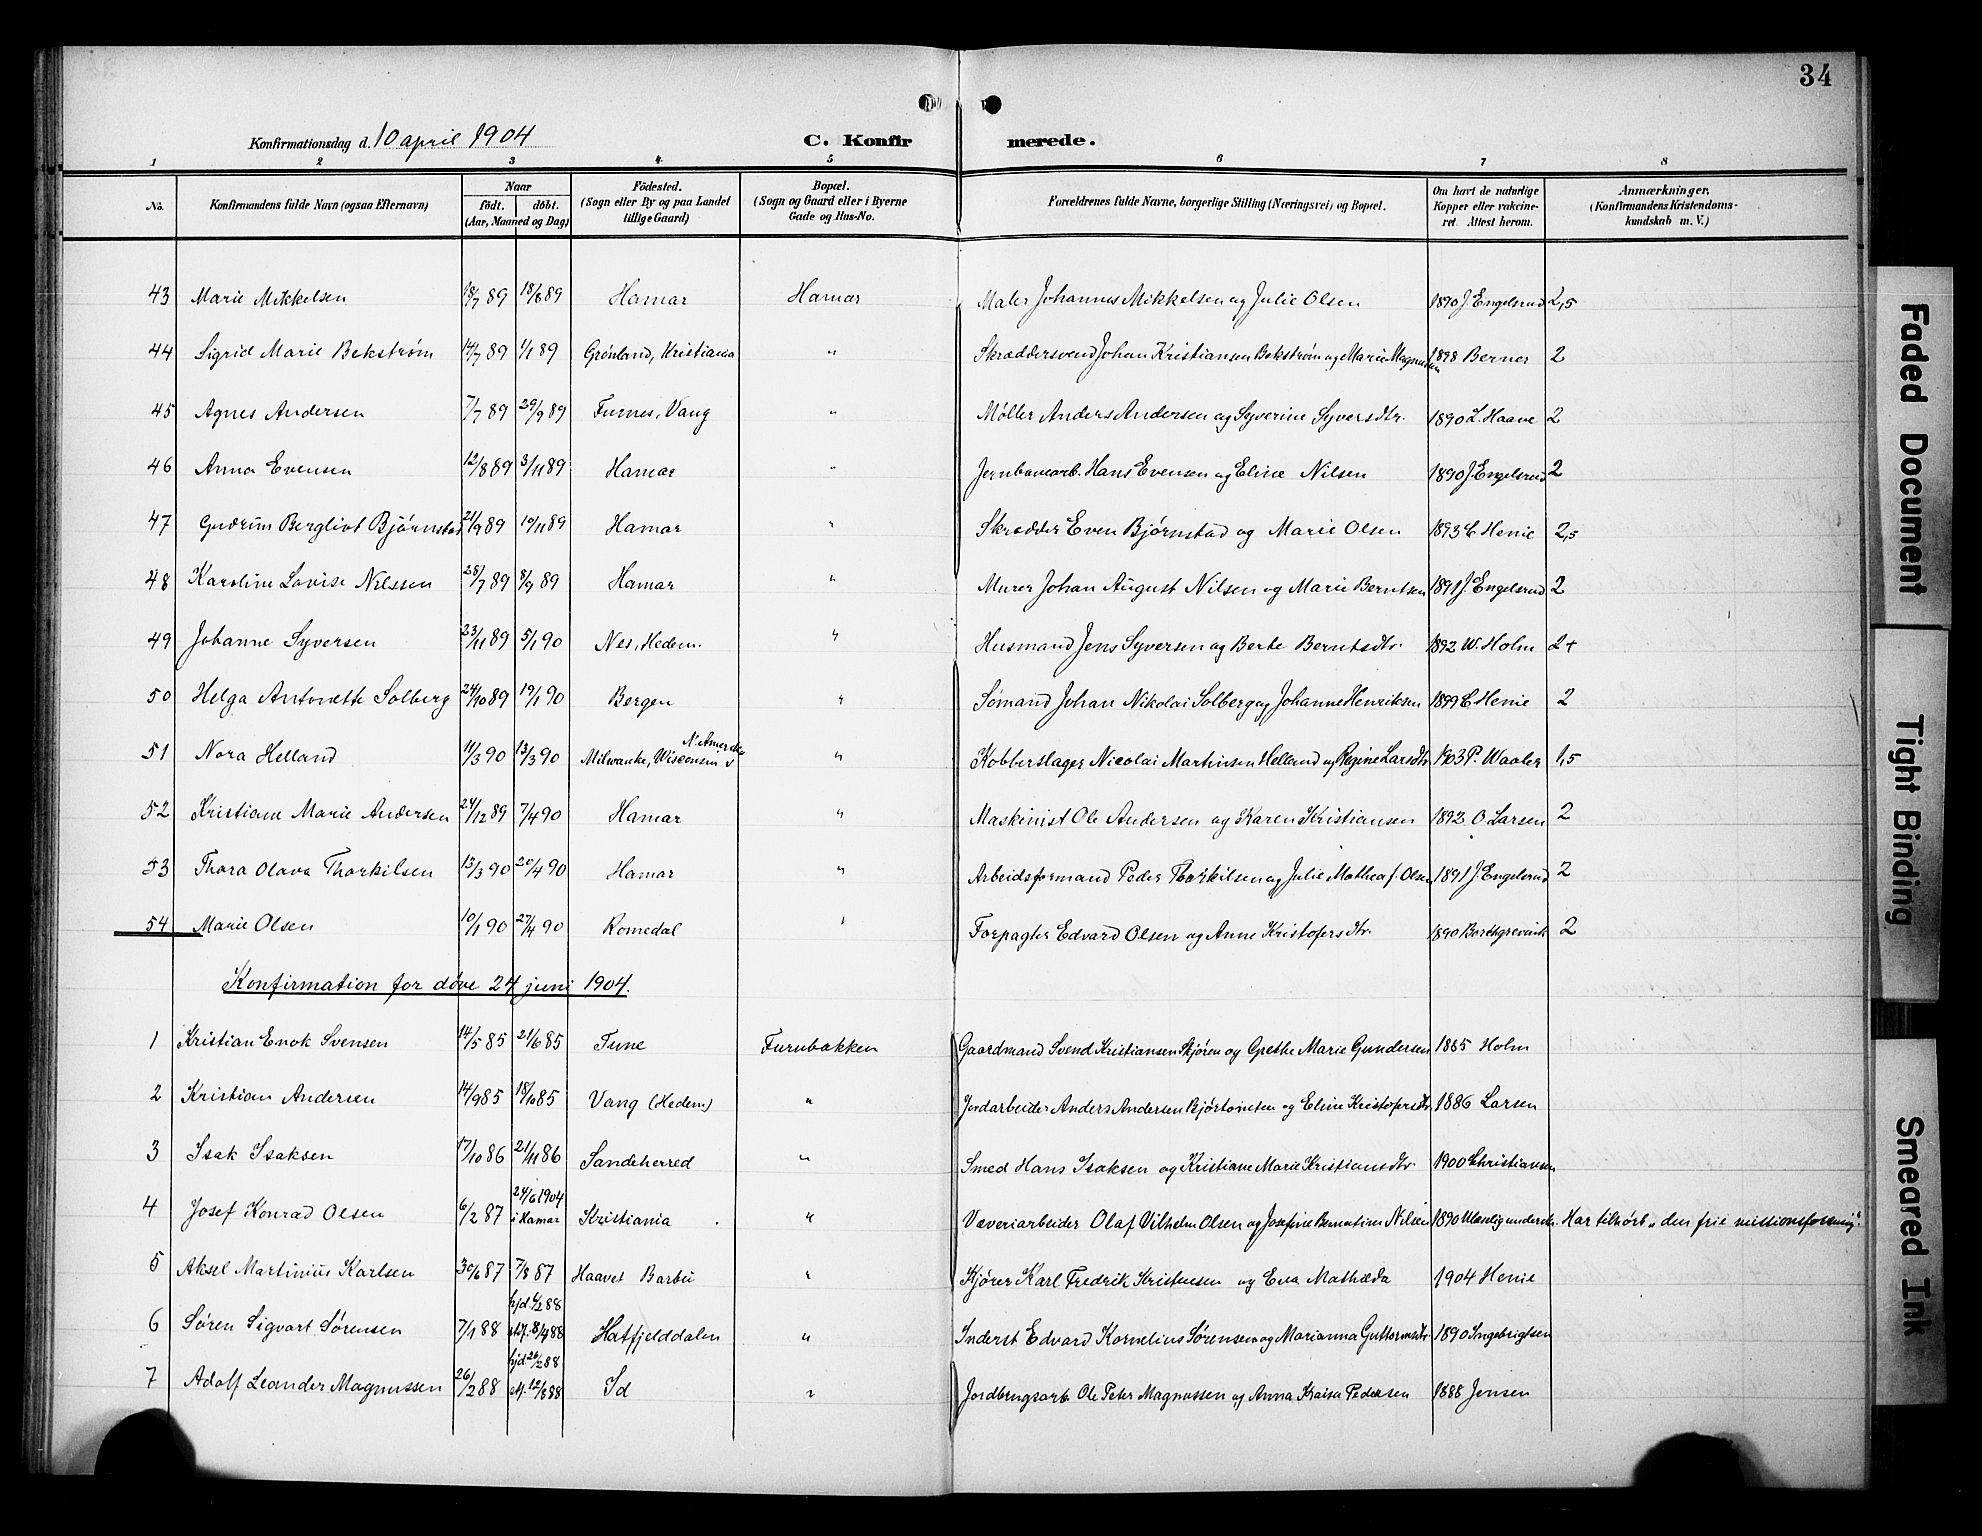 34
Konfirmationsdag d. 10 april 1904
C. Konfirmerede.
1 2 3 4 5 6 7 8
No. Konfirmandens fulde Navn (ogsaa Efternavn) Naar födt. döbt. (Aar, Maaned og Dag) Födested. (Sogn eller By og paa Landet tillige Gaard) Bopæl. (Sogn og Gaard eller i Byerne Gade og Hus-No. Forældrenes fulde Navne, borgerlige Stilling (Næringsvei) og Bopæl. Om havt de naturlige Kopper eller vakcineret. Attest herom. Anmærkninger. (Konfirmandens Kristendomskundskab m. V.)
43 Marie Mikkelsen 18/7 89 18/8 89 Hamar Hamar Maler Johannes Mikkelsen og Julie Olsen 1890 J. Engelsrud 2,5
44 Sigrid Marie Bekstrøm 14/7 89 1/1 89 Grønland, Kristiania " Skræddersvend Johan Kristiansen Bekstrøm og Marie Magnussen 1898 Berner 2
45 Agnes Andersen 7/7 89 29/9 89 Furnes, Vang " Møller Anders Andersen og Syverine Syversdtr. 1890 L. Haave 2
46 Anna Evensen 12/8 89 3/11 89 Hamar " Jernbanearb. Hans Evensen og Eline Nilsen 1890 J. Engelsrud 2
47 Gudrun Bergliot Bjørnstad 21/9 89 10/11 89 Hamar " Skrædder Even Bjørnstad og Marie Olsen 1893 C Henie 2,5
48 Karoline Lovise Nilssen 28/7 89 8/9 89 Hamar " Murer Johan August Nilsen og Marie Berntsen 1891 J. Engelsrud 2
49 Johanne Syversen 23/11 89 5/1 90 Nes, Hedem. " Husmand Jens Syversen og Berte Berntsdtr. 1892 W. Holm 2+
50 Helga Antonette Solberg 24/10 89 19/1 90 Bergen " Sømand Johan Nikolai Solberg og Johanne Henriksen 1899 C Henie 2
51 Nora Helland 11/3 90 13/3 90 Milwauke, Wisconsin N. Amerika " Kobberslager Nicolai Martinsen Helland og Regine Larsdtr 1903 P. Waaler 1,5
52 Kristiane Marie Andersen 24/12 89 7/4 90 Hamar " Maskinist Ole Andersen og Karen Kristiansen 1892 O. Larsen 2
53 Thora Olava Thorkilsen 13/3 90 20/4 90 Hamar " Arbeidsformand Peder Thorkilsen og Julie Mathea f. Olsen 1891 J. Engelsrud 2
54 Marie Olsen 10/1 90 27/4 90 Romedal " Forpagter Edvard Olsen og Anne Kristofersdtr. 1890 Borchgrevink 2
Konfirmation for døve 24 juni 1904.
1 Kristian Enok Svensen 14/5 85 21/6 85 Tune Furubakken Gaardmand Svend Kristiansen Skjøren og Grethe Marie Gundersen 1885 Holm
2 Kristian Andersen 14/9 85 18/10 85 Vang (Hedem) " Jordarbeider Anders Andersen og Eline Kristofersdtr 1886 Larsen
3 Isak Isaksen 17/10 86 21/11 86 Sandeherred " Smed Hans Isaksen og Kristiane Marie Kristiansdtr. 1900 Christiansen
4 Josef Konrad Olsen 6/2 87 24/6 1904 i Hamar Kristiania " Væveriarbeider Olaf Vilhelm Olsen og Josefine Bernatine Nilsen 1890 Ulæselig underskr. Har tilhørt "den frie missionsforening".
5 Aksel Martinius Karlsen 30/6 87 7/8 87 Haavet Barbu " Kjører Karl Fredrik Kristensen og Eva Mathæda 1904 Henie
6 Søren Sigvart Sørensen 7/1 88 hjd. 6/2 88 stf. 8/4 88 Hatfjelddalen " Inderst Edvard Kornelius Sørensen og Marianna Guttormsdtr. 1890 Ingebrigtsen
7 Adolf Leander Magnussen 26/2 88 hjd. 26/2 88 stf. 12/8 88 Id " Jordbrugsarb. Ole Peter Magnussen og Anna Kaisa Pedersen 1888 Jensen
Faded Document
Tight Binding
Smeared Ink